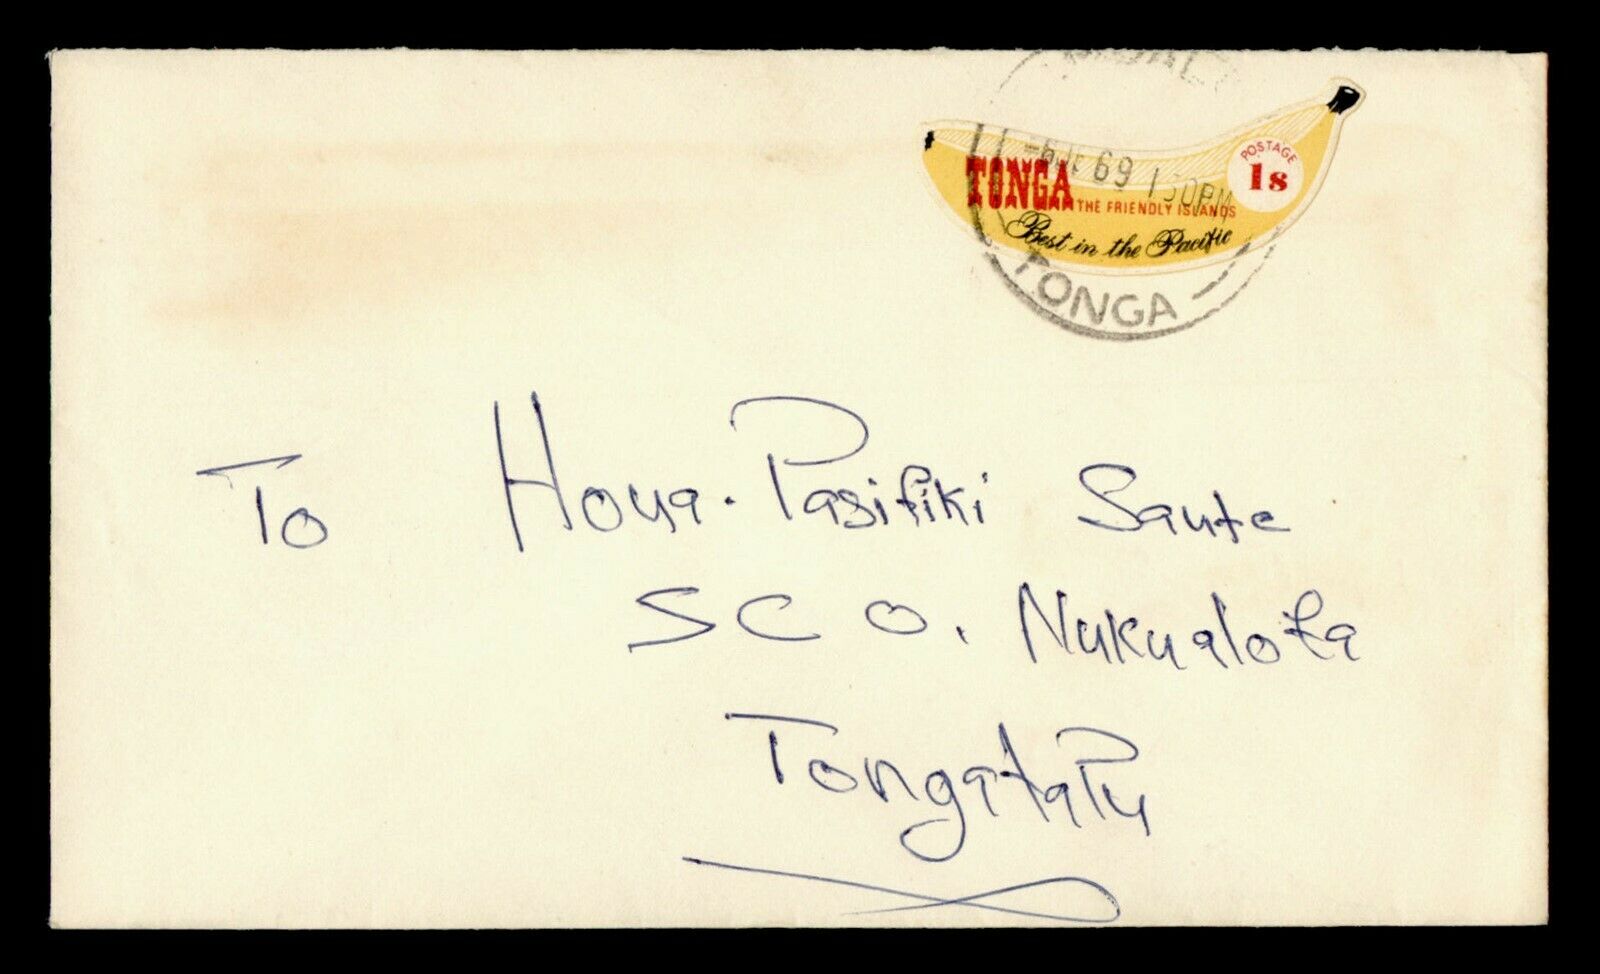 POSTAGE
1s
TONGA THE FRIENDLY ISLANDS
Best in the Pacific
-6 JE 69 1 30PM
TONGA
To Houa. Pasifiki Saute
SCO. Nukualofa
Tongatapu